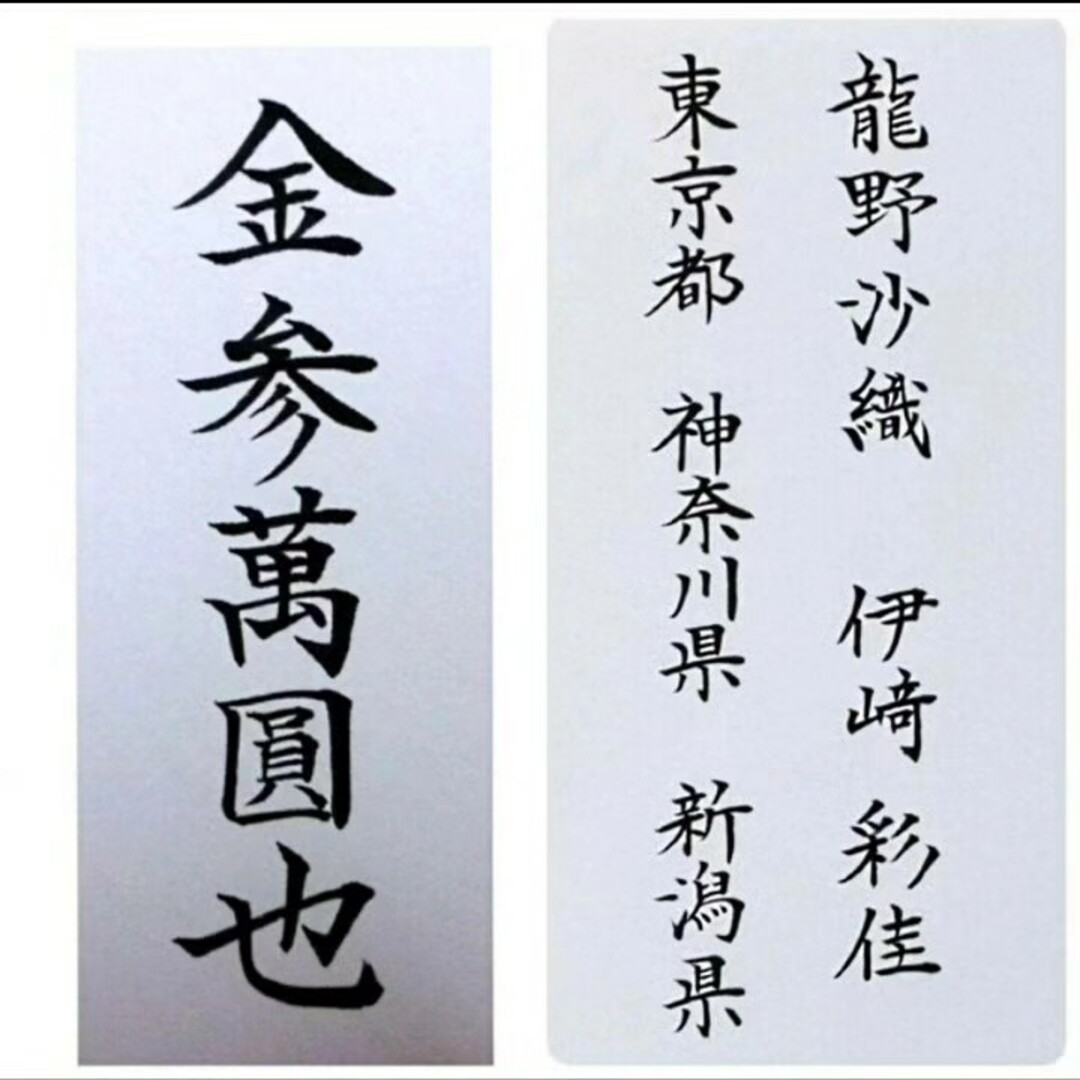 金参萬圓也
龍野沙織 伊﨑彩佳
東京都 神奈川県 新潟県